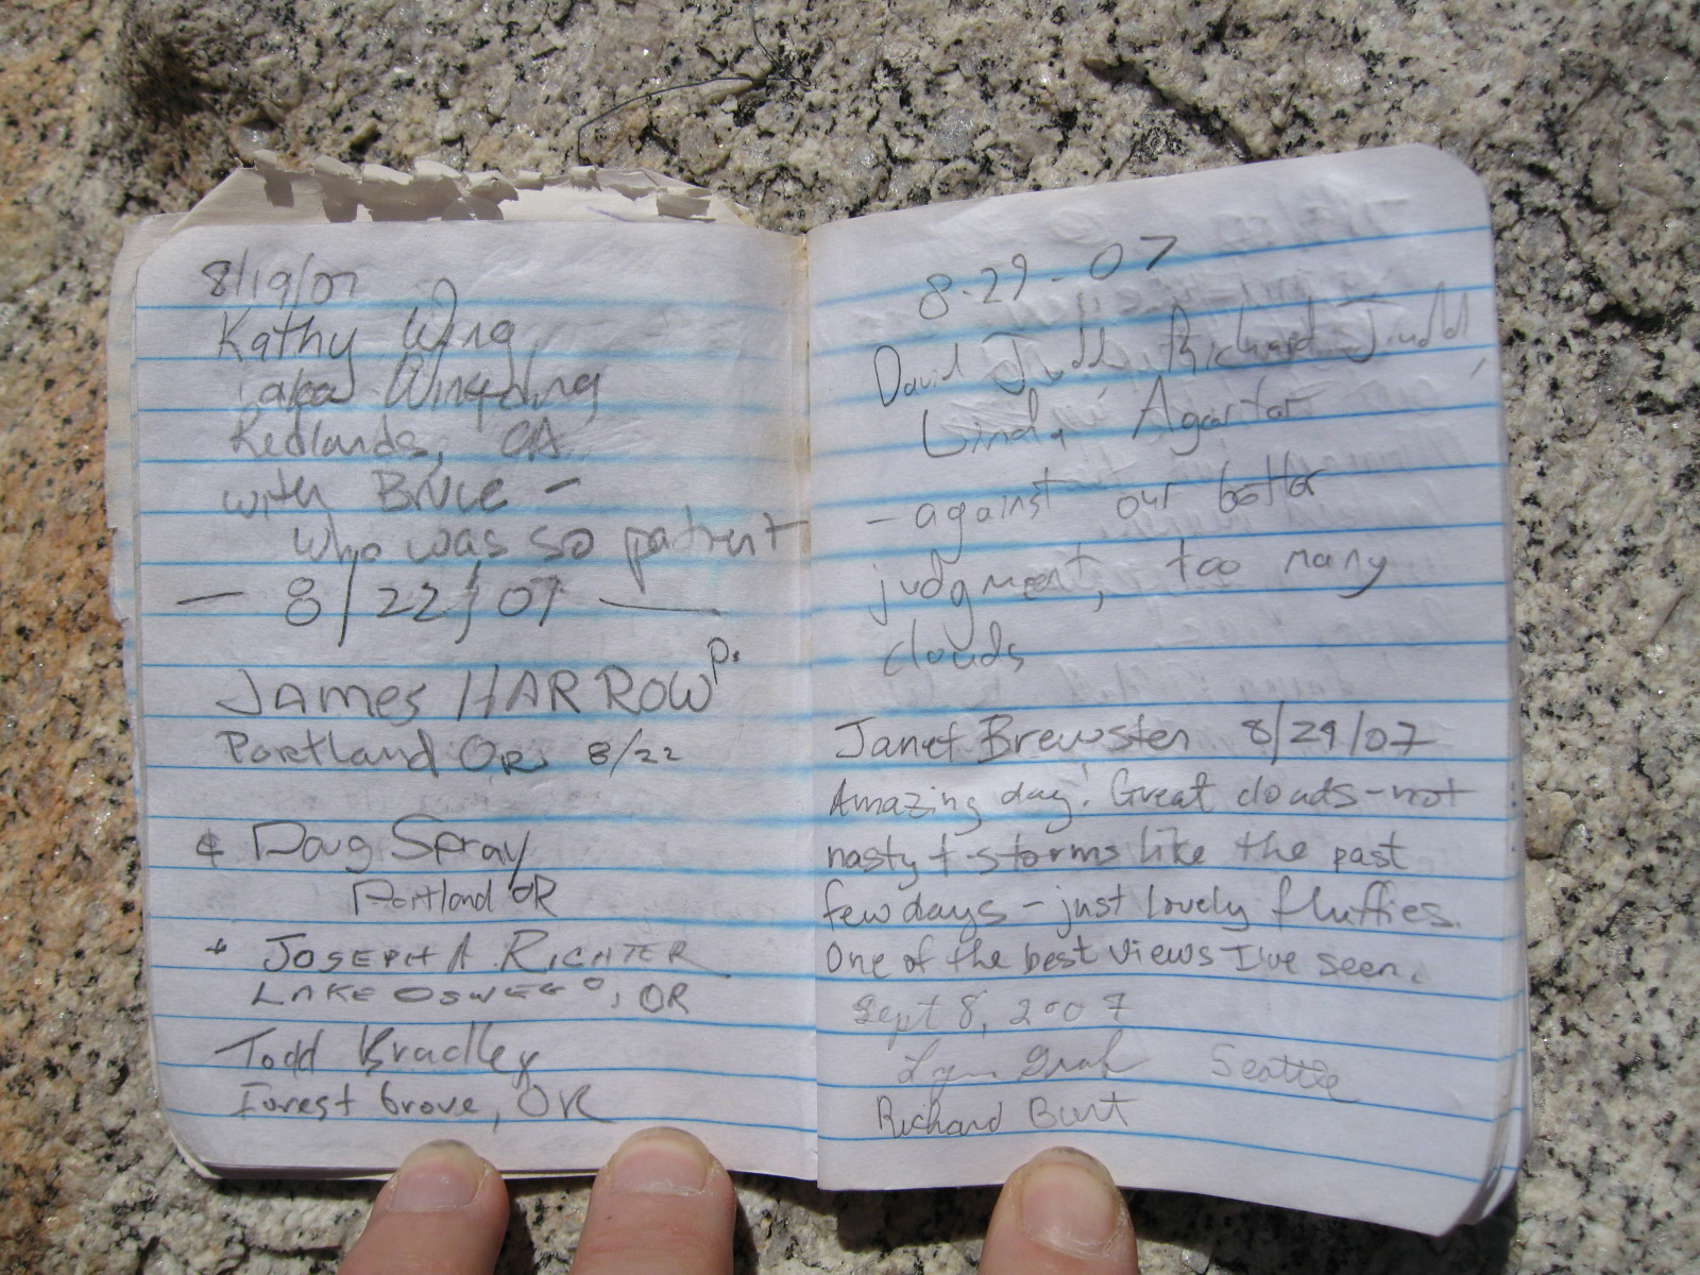 8/19/07
Kathy Wing
aka Wingding
Redlands, CA
with Bruce –
who was so patient
— 8/22/07 —
James HARROW P.
Portland OR 8/22
& Doug Spray
Portland OR
+ JOSEPH A. RICHTER
LAKE OSWEGO, OR
Todd Bradley
Forest Grove, OR
8-29-07
David Judd, Richard Judd,
Linda Agartar
– against our better
judgment, too many
clouds
Janet Brewster 8/29/07
Amazing day! Great clouds – not
nasty t-storms like the past
few days – just lovely fluffies.
One of the best views I've seen.
Sept 8, 2007
Seattle
Richard Burt